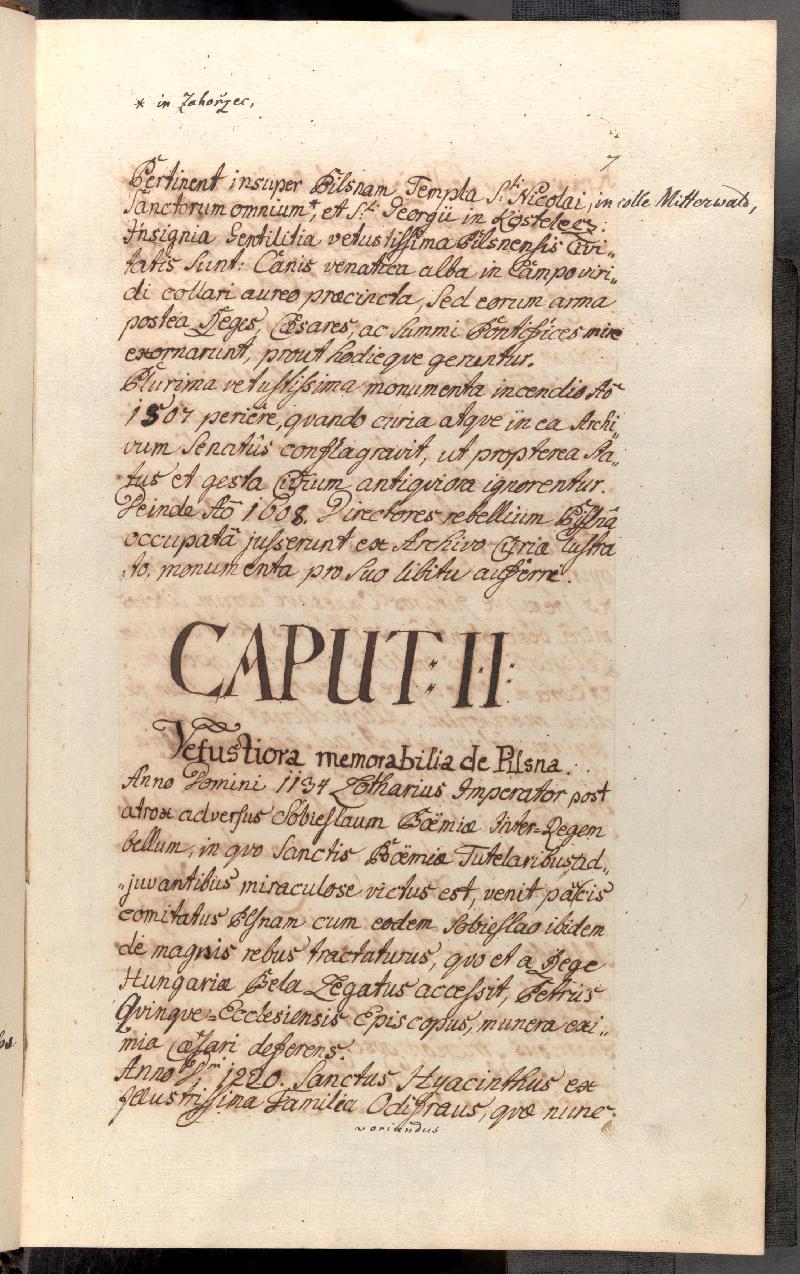 * in Zahorzec,
7
Pertinent insuper Pilsnam Templa S:ti Nicolai, in colle Mitterwald,
Sanctorum omnium*, et S:ti Georgii in Kostelecz:
Insignia Gentilitia vetustissima Pilsnensis Civi„
tatis sunt: Canis venatica alba in Campo viri„
di collari aureo præcincta, Sed eorum arma
postea Reges, Cæsares, ac Summi Pontiffices mire
exornarunt, prout hodieqve geruntur.
Plurima vetustissima monumenta incendio Aõ
1507 periêre, quando curia atqve in ea Archi„
vum Senatûs conflagravit, ut propterea sta„
tus et gesta Civium antiqviora ignorentur.
Deinde Aõ 1608. Directores rebellium Pilsnâ
occupatâ jusserunt ex Archivo Curiæ lustra
to, monumenta pro suo libitu aufferre.
CAPUT: II:
Vetustiora memorabilia de Pilsna.
Anno Domini 1134 Lotharius Imperator post
atrox adversus Sobieslaum Boëmiæ Inter=Regem
bellum, in qvo Sanctis Boëmiæ Tutelaribus ad„
„juvantibus miraculose victus est, venit pacis
comitatus Pilsnam cum eodem Sobieslao ibidem
de magnis rebus tractaturus, quo et a Rege
Hungariæ Bela Legatus accessit, Petrus
Qvinqve=Ecclesiensis Episcopus, munera exi„
mia Cæsari defferens.
Anno 1220. Sanctus Hyacinthus ex
Illustrissima Familia Odrfraus, quæ nunc
voriandus